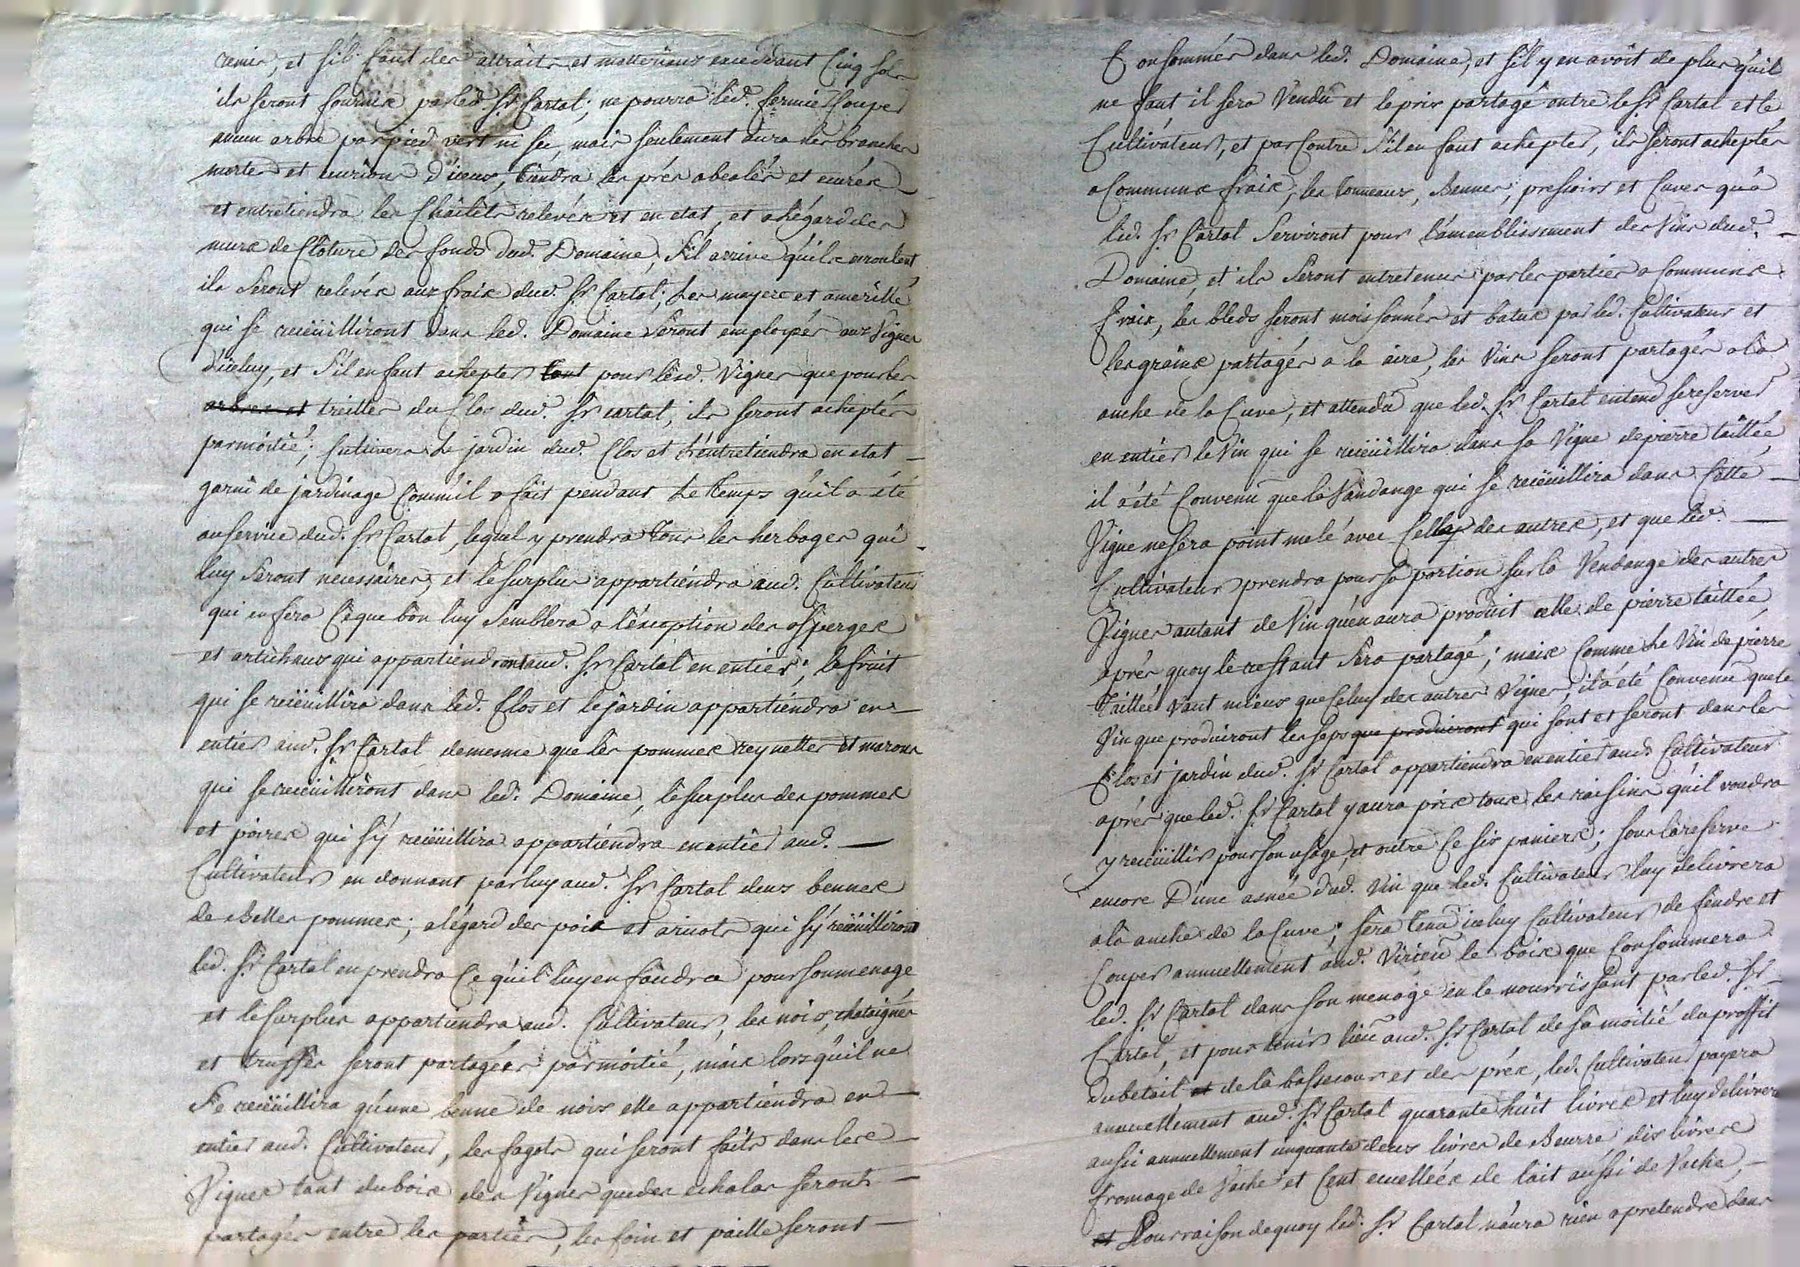 remis, et s'il faut des attraits et matteriaux exceddant Cinq sols
ils seront fournis par led. Sr. Cartal; ne pourra led. fermier Couper
aucun arbre par pied vert ni sec, mais seulement aura les branches
mortes et d'iceux, tiendra les prés abealés et curés
et entretiendra les relevés et en etat, et a l'égard des
murs de Clôture des fonds dud. Domaine, s'il arrive qu'ils écroulent
ils seront relevés aux fraix dud. Sr. Cartal; Les et
qui se recüeilliront dans led. Domaine seront employés aux Vignes
d'iceluy, et s'il en faut achepter tant pour lesd. Vignes que pour les
arbres et treilles du Clos dud. Sr. Cartal, ils seront acheptés
par moitié; Cultivera Le jardin dud. Clos et L'entretiendra en etat —
garni de jardinage Comm'il a fait pendant Le Temps qu'il a été
au service dud. Sr. Cartal, lequel y prendra tous les herbages qui
luy seront necessaires, et le surplus appartiendra aud. Cultivateur
qui en fera Ce que bon luy semblera a l'éxception des asperges
et artichaux qui appartiendront aud. Sr. Cartal en entier; le fruit
qui se recüeillira dans led. Clos et le jardin appartiendra en —
entier aud. Sr. Cartal, de mesme que les pommes reynettes et marons
qui se recüeilliront dans led. Domaine, le surplus des pommes
et poires qui s'y recüeillira appartiendra en entier aud. —
Cultivateur en donnant par luy aud. Sr. Cartal deux bennes
de Belles pommes; a l'égard des pois et aricots qui s'y recüeilliront
led. Sr. Cartal en prendra Ce qu'il luy en faudra pour son menage
et le surplus appartiendra aud. Cultivateur, les noix, chataignes
et truffes seront partagées par moitié, mais lorsqu'il ne
se recüeillira qu'une benne de noix elle appartiendra en —
entier aud. Cultivateur, les fagots qui seront faits dans les —
Vignes tant du bois des Vignes que des echalas seront —
partagés entre les parties, les foin et paille seront —
Consommés dans led. Domaine, et s'il y en avoit de plus qu'il
ne faut il sera Vendû et le prix partagé entre le Sr. Cartal et le
Cultivateur, et par Contre s'il en faut achepter, ils seront acheptés
a Communs fraix; les Tonneaux, Bennes, pressoirs et Cuves qu'a
led. Sr. Cartal serviront pour l'ameublissement des Vins dud. —
Domaine, et ils seront entretenus par les parties a Communs
fraix, les bleds seront moissonnés et batus par led. Cultivateur et
les grains partagés a la aire, les Vins seront partagés a la
anche de la Cuve, et attendû que led. Sr. Cartal entend se reserver
en entier le Vin qui se recüeillira dans sa Vigne de pierre taillée,
il a été Convenû que la Vandange qui se recüeillira dans Cette —
Vigne ne sera point melé avec Celle des autres, et que led. —
Cultivateur prendra pour sa portion sur la Vendange des autres
Vignes autant de Vin qu'en aura produit celle de pierre taillée,
aprés quoy le restant sera partagé; mais Comme Le Vin de pierre
Taillée Vaut mieux que Celuy des autres Vignes, il a été Convenû que le
Vin que produiront les seps que produiront qui sont et seront dans les
Clos et jardin dud. Sr. Cartal appartiendra en entier aud. Cultivateur
aprés que led. Sr. Cartal y aura pris tous les raisins qu'il voudra
y recüeillir pour son usage et outre Ce six paniers; sous la reserve
encore D'une asnée dud. Vin que led. Cultivateur luy delivrera
a la anche de la Cuve; sera tenu iceluy Cultivateur de fendre et
Couper annuellement aud. Virieu le bois que Consommera
led. Sr. Cartal dans son menage en le nourrissant par led. Sr.
Cartal, et pour tenir lieu aud. Sr. Cartal de sa moitié du proffit
du betail et de la bassecour et des prés, led. Cultivateur payera
annuellement aud. Sr. Cartal quarante huit livres et luy delivrera
aussi annuellement cinquante deux livres de Beurre dix livres
fromage de Vache et Cent ecuellées de lait aussi de Vache, —
et Pour raison de quoy led. Sr. Cartal n'aura rien a pretendre dans